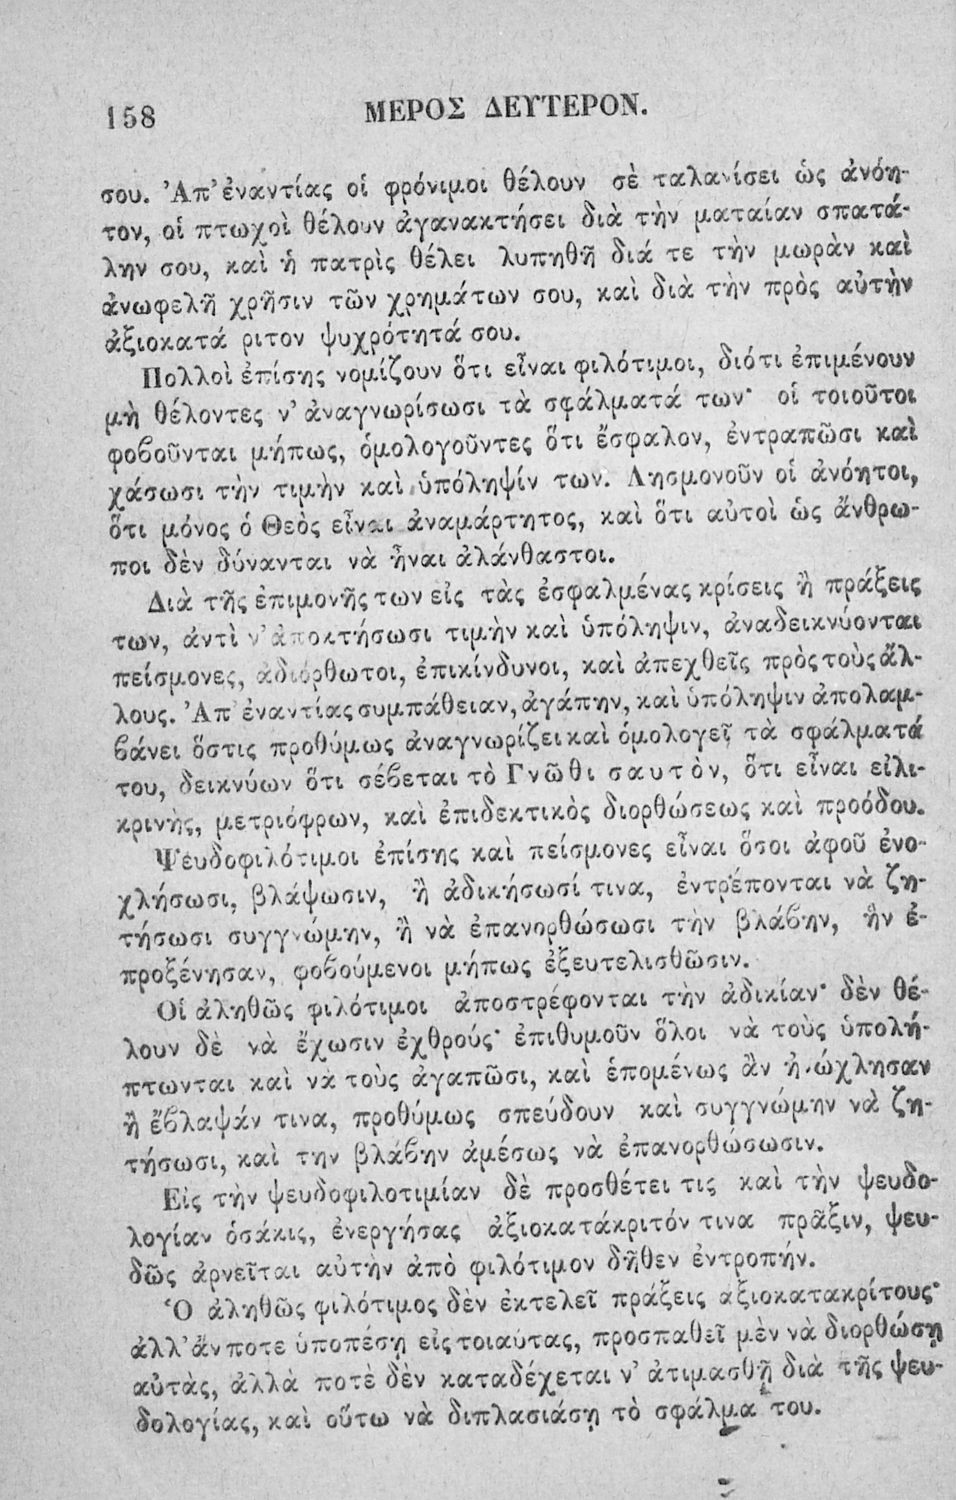 158 ΜΕΡΟΣ ΔΕΥΤΕΡΟΝ.
σου. Ἀπ' ἐναντίας οἱ φρόνιμοι θέλουν σὲ ταλανίσει ὡς ἀνόη-
τον, οἱ πτωχοὶ θέλουν ἀγανακτήσει διὰ τὴν ματαίαν σπατά-
λην σου, καὶ ἡ πατρὶς θέλει λυπηθῆ διά τε τὴν μωρὰν καὶ
ἀνωφελῆ χρῆσιν τῶν χρημάτων σου, καὶ διὰ τὴν πρὸς αὐτὴν
ἀξιοκατά ριτον ψυχρότητά σου.
Πολλοὶ ἐπίσης νομίζουν ὅτι εἶναι φιλότιμοι, διότι ἐπιμένουν
μὴ θέλοντες ν' ἀναγνωρίσωσι τὰ σφάλματά των· οἱ τοιοῦτοι
φοβοῦνται μήπως, ὁμολογοῦντες ὅτι ἔσφαλον, ἐντραπῶσι καὶ
χάσωσι τὴν τιμὴν καὶ ὑπόληψίν των. Λησμονοῦν οἱ ἀνόητοι,
ὅτι μόνος ὁ Θεὸς εἶναι ἀναμάρτητος, καὶ ὅτι αὐτοὶ ὡς ἄνθρω-
ποι δὲν δύνανται νὰ ἦναι ἀλάνθαστοι.
Διὰ τῆς ἐπιμονῆς των εἰς τὰς ἐσφαλμένας κρίσεις ἢ πράξεις
των, ἀντὶ ν' ἀποκτήσωσι τιμὴν καὶ ὑπόληψιν, ἀναδεικνύονται
πείσμονες, ἀδιόρθωτοι, ἐπικίνδυνοι, καὶ ἀπεχθεῖς πρὸς τοὺς ἄλ-
λους. Ἀπ' ἐναντίας συμπάθειαν, ἀγάπην, καὶ ὑπόληψιν ἀπολαμ-
βάνει ὅστις προθύμως ἀναγνωρίζει καὶ ὁμολογεῖ τὰ σφάλματά
του, δεικνύων ὅτι σέβεται τὸ Γνῶθι σαυτὸν, ὅτι εἶναι εἰλι-
κρινὴς, μετριόφρων, καὶ ἐπιδεκτικὸς διορθώσεως καὶ προόδου.
Ψευδοφιλότιμοι ἐπίσης καὶ πείσμονες εἶναι ὅσοι ἀφοῦ ἐνο-
χλήσωσι, βλάψωσιν, ἢ ἀδικήσωσί τινα, ἐντρέπονται νὰ ζη-
τήσωσι συγγνώμην, ἢ νὰ ἐπανορθώσωσι τὴν βλάβην, ἣν ἐ-
προξένησαν, φοβούμενοι μήπως ἐξευτελισθῶσιν.
Οἱ ἀληθῶς φιλότιμοι ἀποστρέφονται τὴν ἀδικίαν· δὲν θέ-
λουν δὲ νὰ ἔχωσιν ἐχθρούς· ἐπιθυμοῦν ὅλοι νὰ τοὺς ὑπολή-
πτωνται καὶ νὰ τοὺς ἀγαπῶσι, καὶ ἑπομένως ἂν ἠνώχλησαν
ἢ ἔβλαψάν τινα, προθύμως σπεύδουν καὶ συγγνώμην νὰ ζη-
τήσωσι, καὶ την βλάβην ἀμέσως νὰ ἐπανορθώσωσιν.
Εἰς τὴν ψευδοφιλοτιμίαν δὲ προσθέτει τις καὶ τὴν ψευδο-
λογίαν ὁσάκις, ἐνεργήσας ἀξιοκατάκριτόν τινα πρᾶξιν, ψευ-
δῶς ἀρνεῖται αὐτὴν ἀπὸ φιλότιμον δῆθεν ἐντροπήν.
Ὁ ἀληθῶς φιλότιμος δὲν ἐκτελεῖ πράξεις ἀξιοκατακρίτους·
ἀλλ' ἄν ποτε ὑποπέσῃ εἰς τοιαύτας, προσπαθεῖ μὲν νὰ διορθώσῃ
αὐτὰς, ἀλλὰ ποτὲ δὲν καταδέχεται ν' ἀτιμασθῇ διὰ τῆς ψευ-
δολογίας, καὶ οὕτω νὰ διπλασιάσῃ τὸ σφάλμα του.